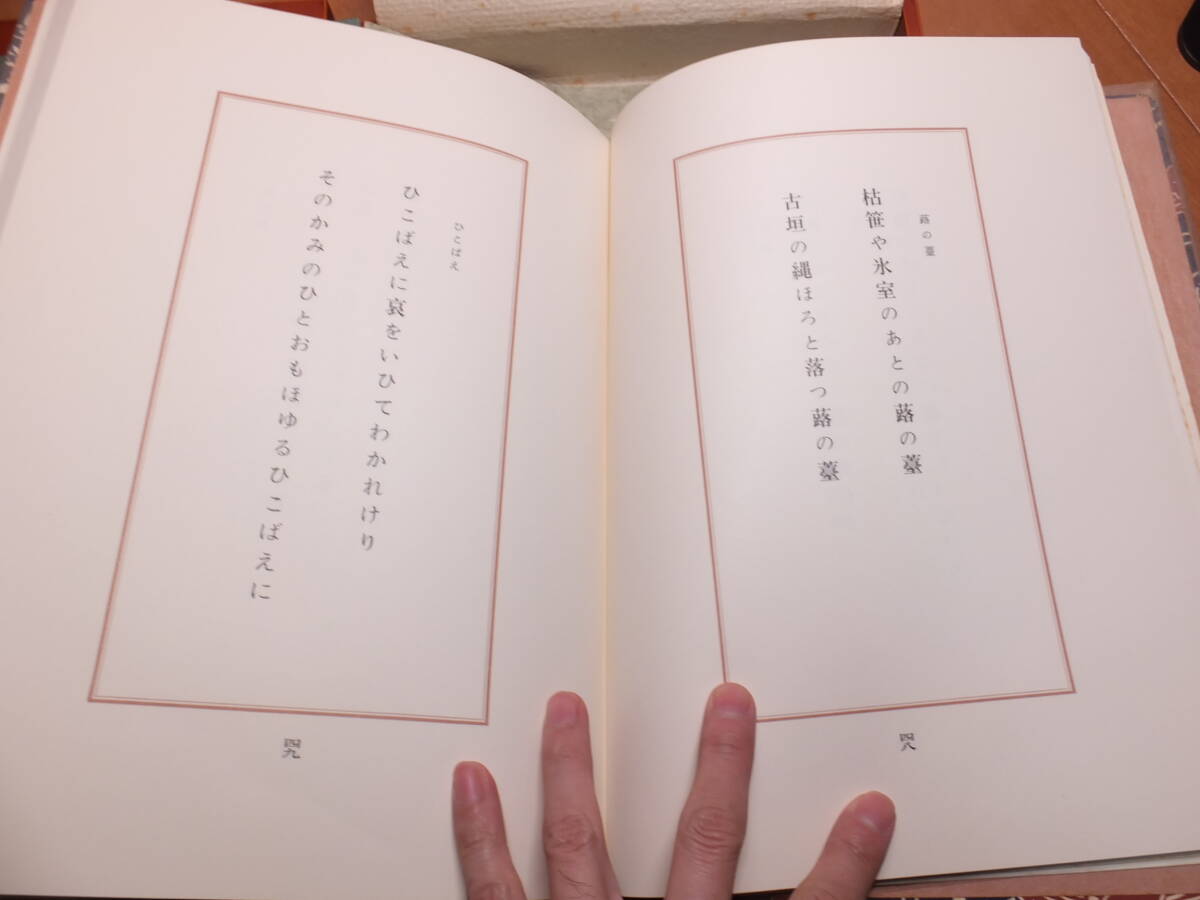 蕗の薹
枯笹や氷室のあとの蕗の薹
古垣の縄ほろと落つ蕗の薹
四八
ひこばえ
ひこばえに哀をいひてわかれけり
そのかみのひとおもほゆるひこばえに
四九